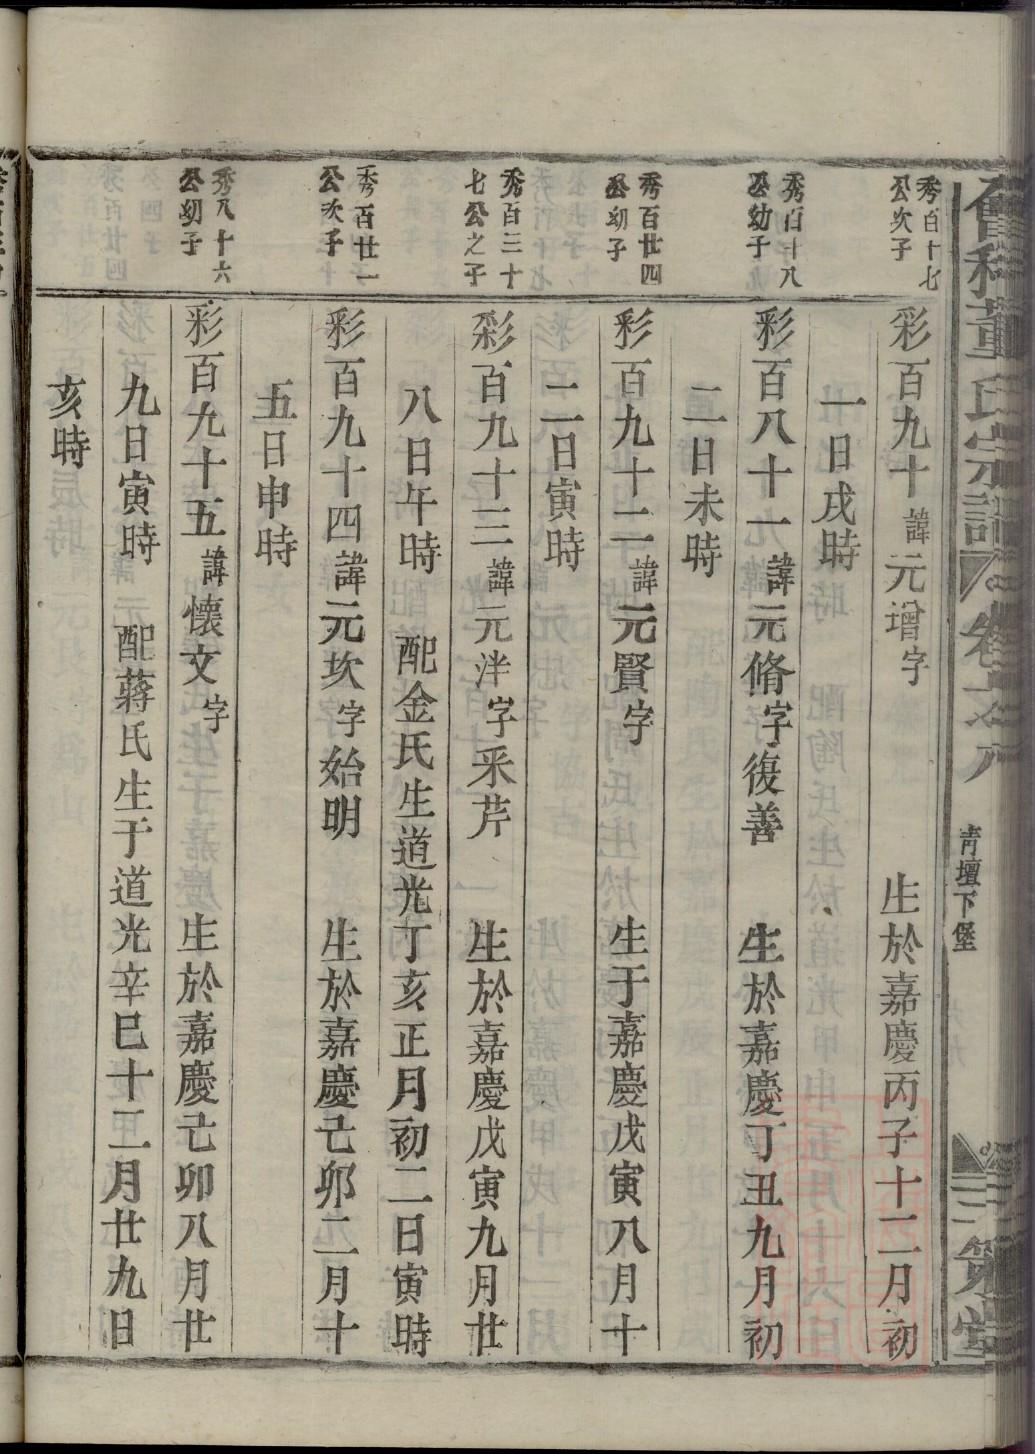 董氏宗譜
卷之八
青壇下堡
三策堂
秀百十七
公次子
彩百九十諱元增字 生於嘉慶丙子十二月初
一日戌時
秀百十八
公幼子
彩百八十一諱元脩字復善 生於嘉慶丁丑九月初
二日未時
秀百廿四
公幼子
彩百九十二諱元賢字 生于嘉慶戊寅八月十
二日寅時
秀百三十
七公之子
彩百九十三諱元泮字采芹 生於嘉慶戊寅九月廿
八日午時 配金氏生道光丁亥正月初二日寅時
秀百廿一
公次子
彩百九十四諱元坎字始明 生於嘉慶己卯二月十
五日申時
秀八十六
公幼子
彩百九十五諱懐文字 生於嘉慶己卯八月廿
九日寅時 配蔣氏生于道光辛巳十二月廿九日
亥時